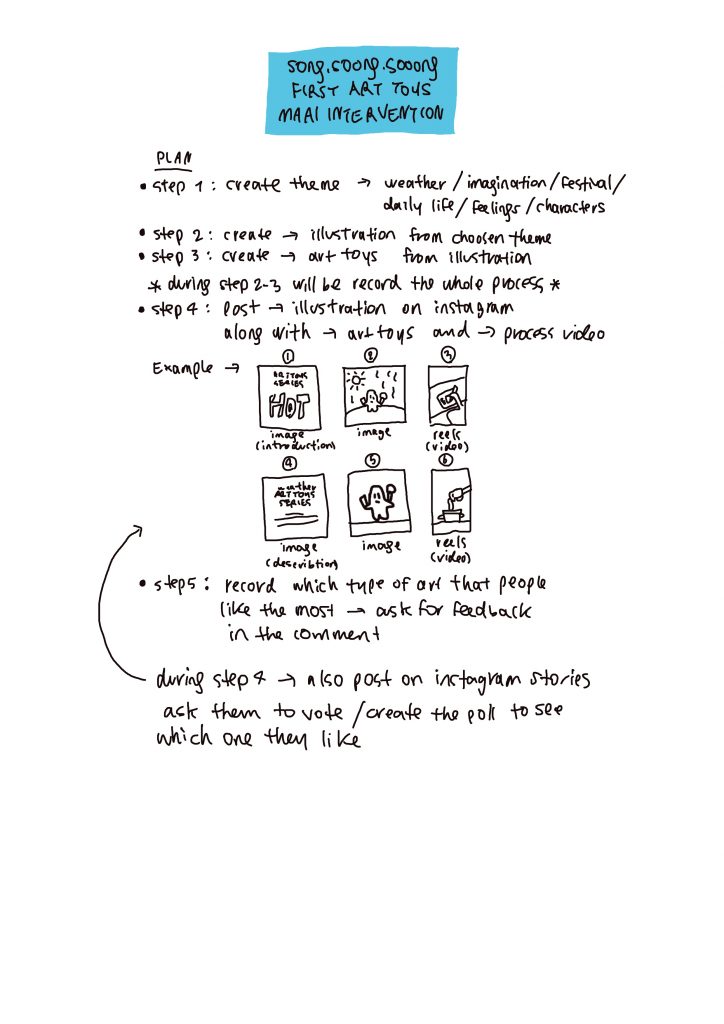 song.soong.sooong
FIRST ART TOYS
MAAI INTERVENTION
PLAN
• step 1 : create theme → weather / imagination / festival /
daily life / feelings / characters
• step 2 : create → illustration from choosen theme
• step 3 : create → art toys from illustration
* during step 2-3 will be record the whole process *
• step 4 : post → illustration on instagram
along with → art toys and → process video
Example →
1 2 3
ART TOYS
SERIES
HOT
image
(introduction)
image
reels
(video)
4 5 6
weather
ART TOYS
SERIES
image
(describtion)
image
reels
(video)
• step 5 : record which type of art that people
like the most → ask for feedback
in the comment
during step 4 → also post on instagram stories
ask them to vote / create the poll to see
which one they like